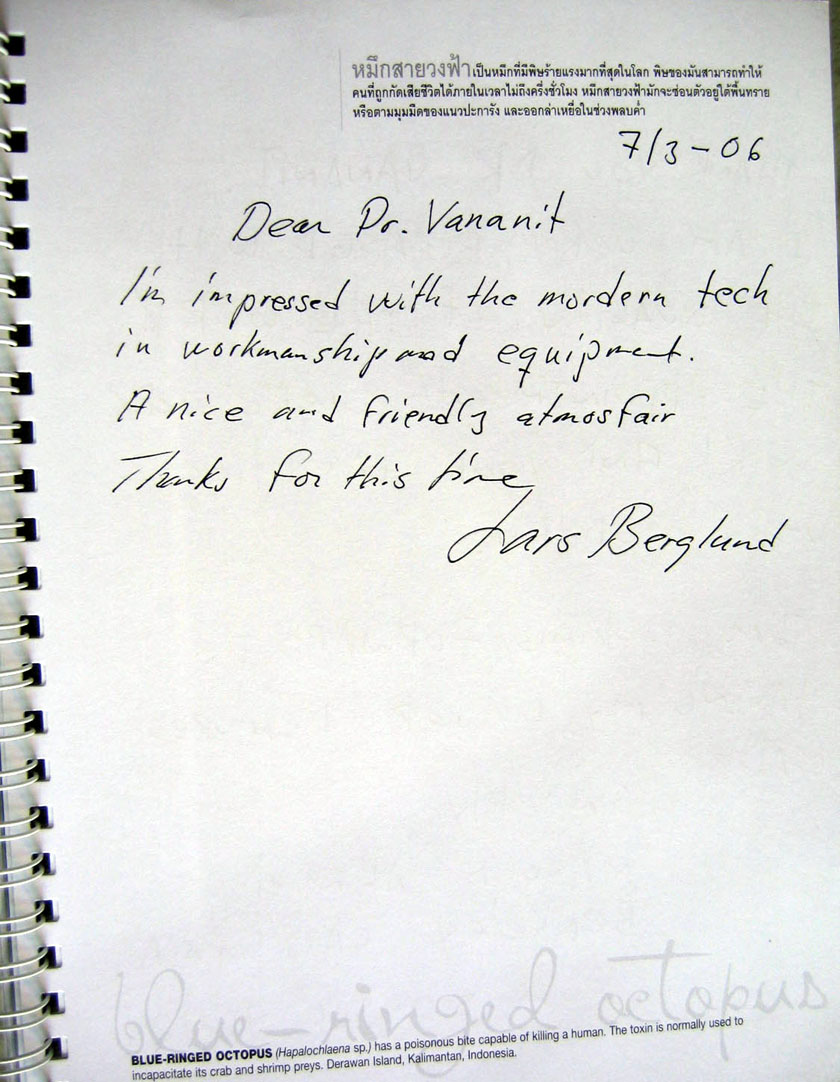 หมึกสายวงฟ้า เป็นหมึกที่มีพิษร้ายแรงมากที่สุดในโลก พิษของมันสามารถทำให้
คนที่ถูกกัดเสียชีวิตได้ภายในเวลาไม่ถึงครึ่งชั่วโมง หมึกสายวงฟ้ามักจะซ่อนตัวอยู่ใต้พื้นทราย
หรือตามมุมมืดของแนวปะการัง และออกล่าเหยื่อในช่วงพลบค่ำ
7/3-06
Dear Dr. Vananit
I'm impressed with the mordern tech
in workmanship and equipment.
A nice and friendly atmosfair
Thanks for this time
Lars Berglund
blue-ringed octopus
BLUE-RINGED OCTOPUS (Hapalochlaena sp.) has a poisonous bite capable of killing a human. The toxin is normally used to
incapacitate its crab and shrimp preys. Derawan Island, Kalimantan, Indonesia.